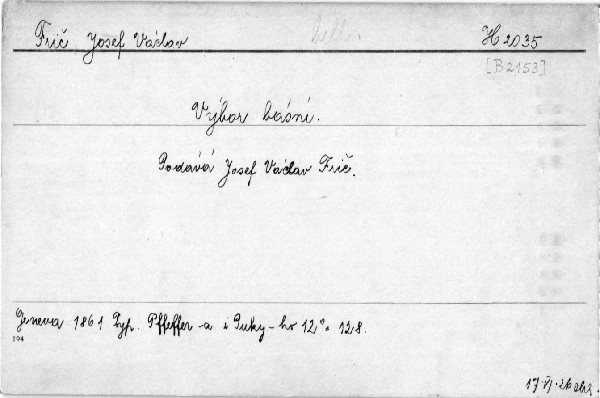 Frič Josef Václav bell. H 2035
[B2153]
Výbor básní.
Podává Josef Václav Frič.
Geneva 1861 Typ. Pfeffer-a i Puky-ho 12°. 128.
194
17.VI.26